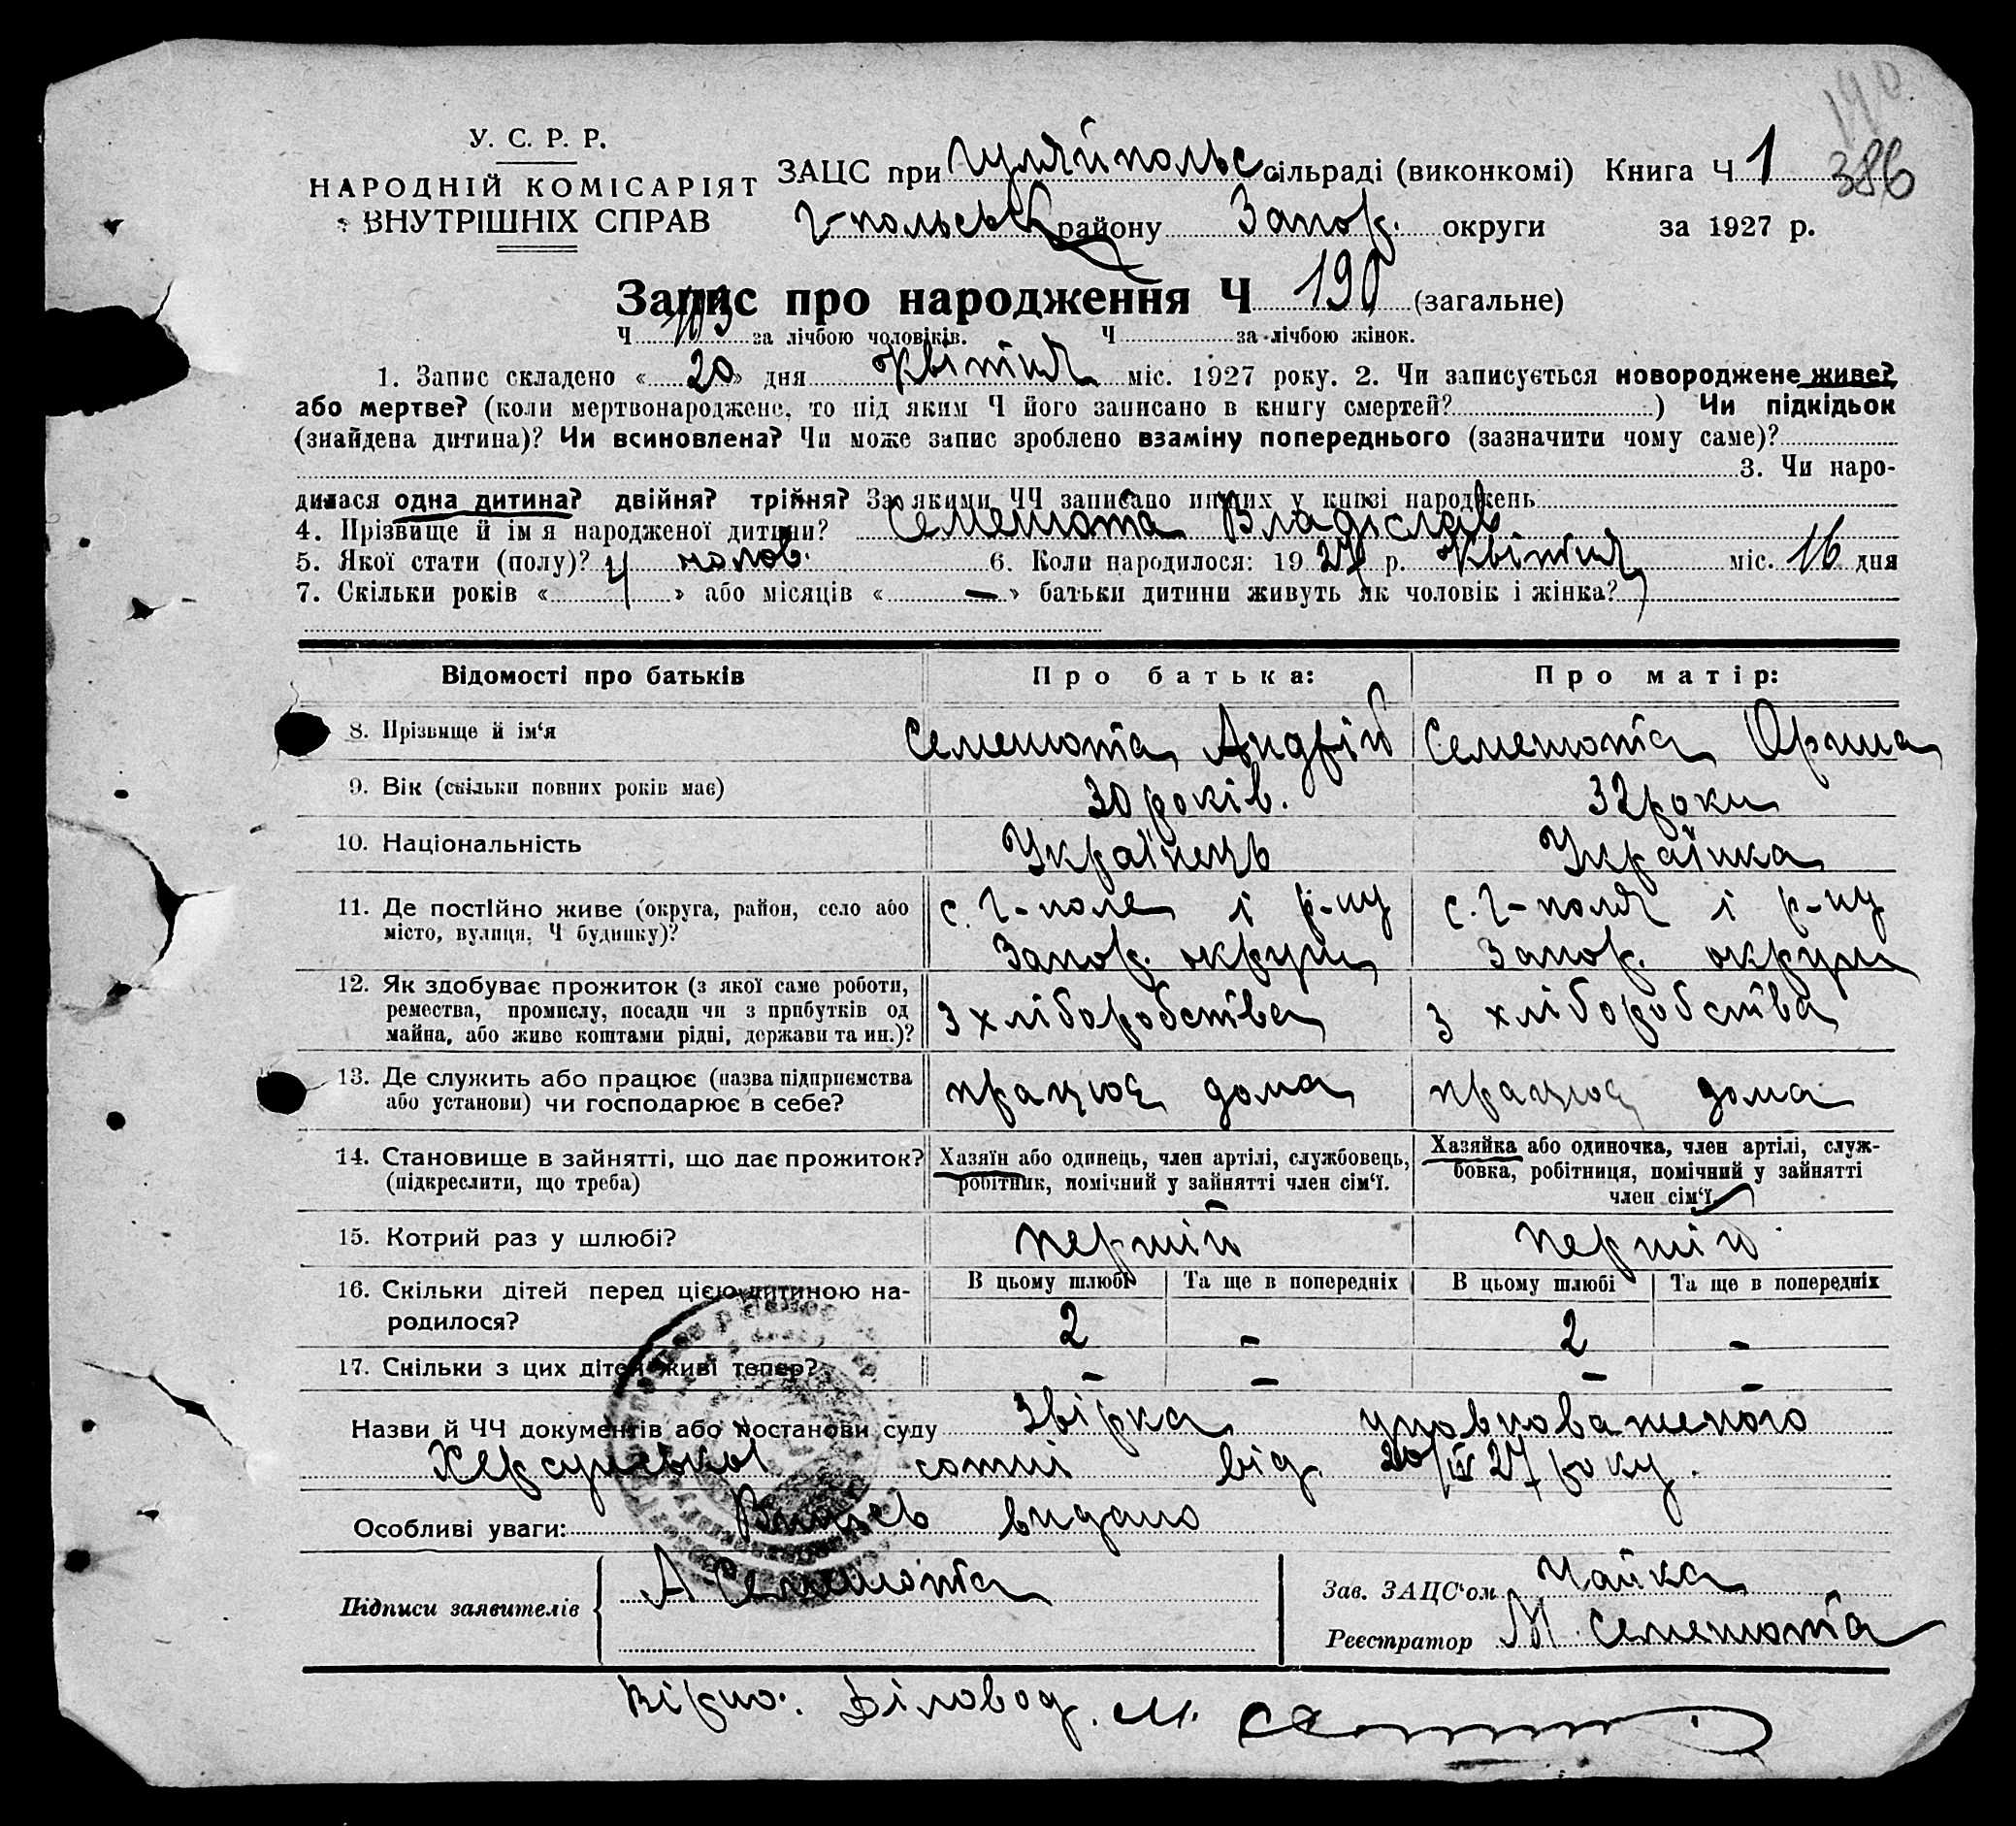 190
У. С. Р. Р.
НАРОДНІЙ КОМІСАРІЯТ
ВНУТРІШНІХ СПРАВ
ЗАЦС при Гуляйпольс. сільраді (виконкомі) Книга Ч 1 386
Г-польськ району Запор. округи за 1927 р.
Запис про народження Ч 190 (загальне)
Ч 103 за лічбою чоловіків. Ч за лічбою жінок.
1. Запис складено « 20 » дня Квітня міс. 1927 року. 2. Чи записується новороджене живе?
або мертве? (коли мертвонароджене, то під яким Ч його записано в книгу смертей? ) Чи підкідьок
(знайдена дитина)? Чи всиновлена? Чи може запис зроблено взаміну попереднього (зазначити чому саме)?
3. Чи наро-
дилася одна дитина? двійня? трійня? За якими ЧЧ записано инших у книзі народжень
4. Прізвище й ім я народженої дитини? Семенюта Владіслав
5. Якої стати (полу)? чолов. 6. Коли народилося: 1927 р. Квітня міс. 16 дня
7. Скільки років « 4 » або місяців « – » батьки дитини живуть як чоловік і жінка?
Відомості про батьків Про батька: Про матір:
8. Прізвище й ім‘я Семенюта Андрій Семенюта Орина
9. Вік (скільки повних років має) 30 років. 32 роки
10. Національність Українець Українка
11. Де постійно живе (округа, район, село або с. Г-поле і р-ну с. Г-поля і р-ну
місто, вулиця, Ч будинку)? Запор. округи Запор. округи
12. Як здобуває прожиток (з якої саме роботи,
ремества, промислу, посади чи з прибутків од з хліборобства з хліборобства
майна, або живе коштами рідні, держави та ин.)?
13. Де служить або працює (назва підприємства працює дома працює дома
або установи) чи господарює в себе?
14. Становище в зайнятті, що дає прожиток? Хазяїн або одинець, член артілі, службовець, Хазяйка або одиночка, член артілі, служ-
(підкреслити, що треба) робітник, помічний у зайнятті член сім‘ї. бовка, робітниця, помічний у зайнятті
член сім‘ї
15. Котрий раз у шлюбі? перший перший
16. Скільки дітей перед цією дитиною на- В цьому шлюбі Та ще в попередніх В цьому шлюбі Та ще в попередніх
родилося? 2 – 2 –
17. Скільки з цих дітей живі тепер? – – – –
Назви й ЧЧ документів або постанови суду Звірка уповноваженого
Херсунської сотні від 20/IV 27 року.
Особливі уваги: Витяг видано
Підписи заявителів А Семенюта
Зав. ЗАЦС‘ом Чайка
Реєстратор М. Семенюта
Вірно: Діловод. М.